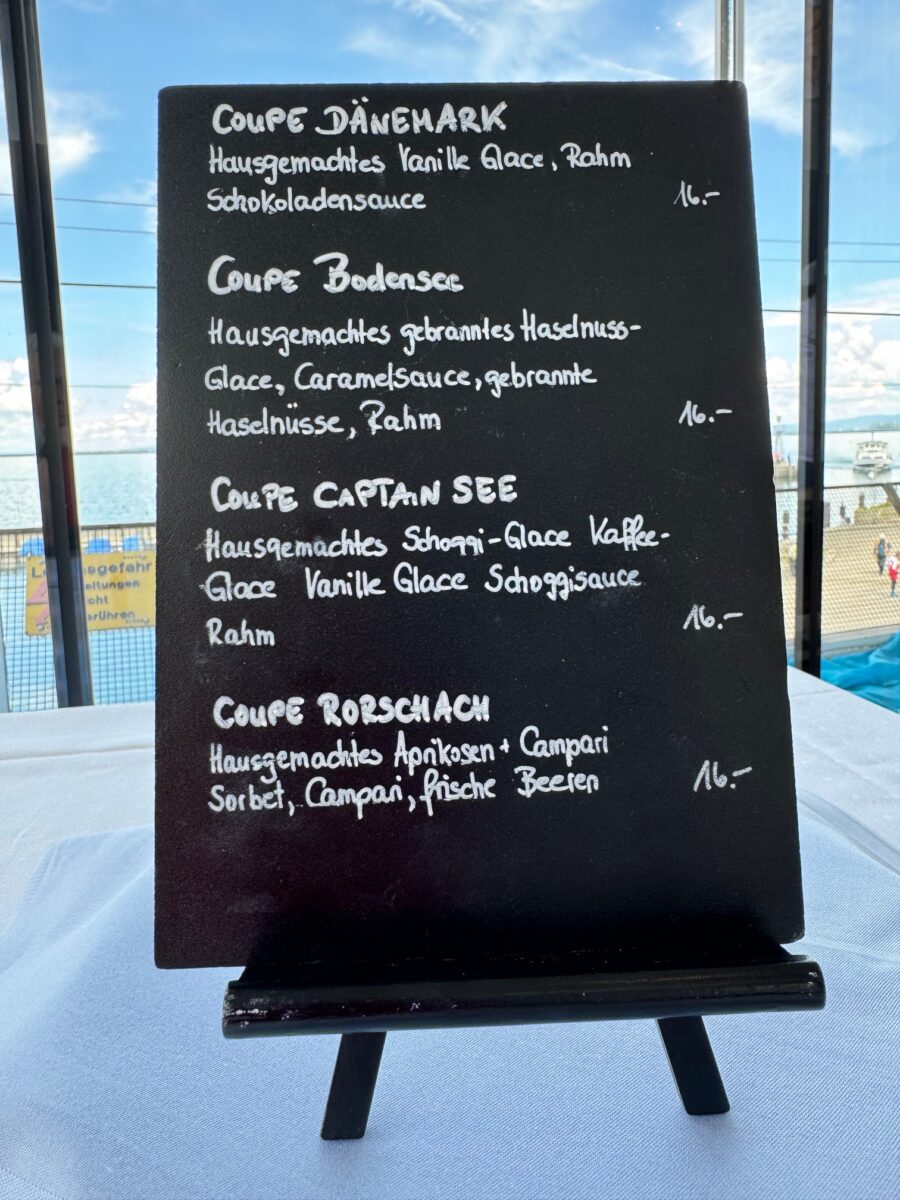 COUPE DÄNEMARK
Hausgemachtes Vanille Glace, Rahm
Schokoladensauce 16.-
COUPE Bodensee
Hausgemachtes gebranntes Haselnuss-
Glace, Caramelsauce, gebrannte
Haselnüsse, Rahm 16.-
COUPE CAPTAIN SEE
Hausgemachtes Schoggi-Glace Kaffee-
Glace Vanille Glace Schoggisauce
Rahm 16.-
COUPE RORSCHACH
Hausgemachtes Aprikosen + Campari
Sorbet, Campari, frische Beeren 16.-